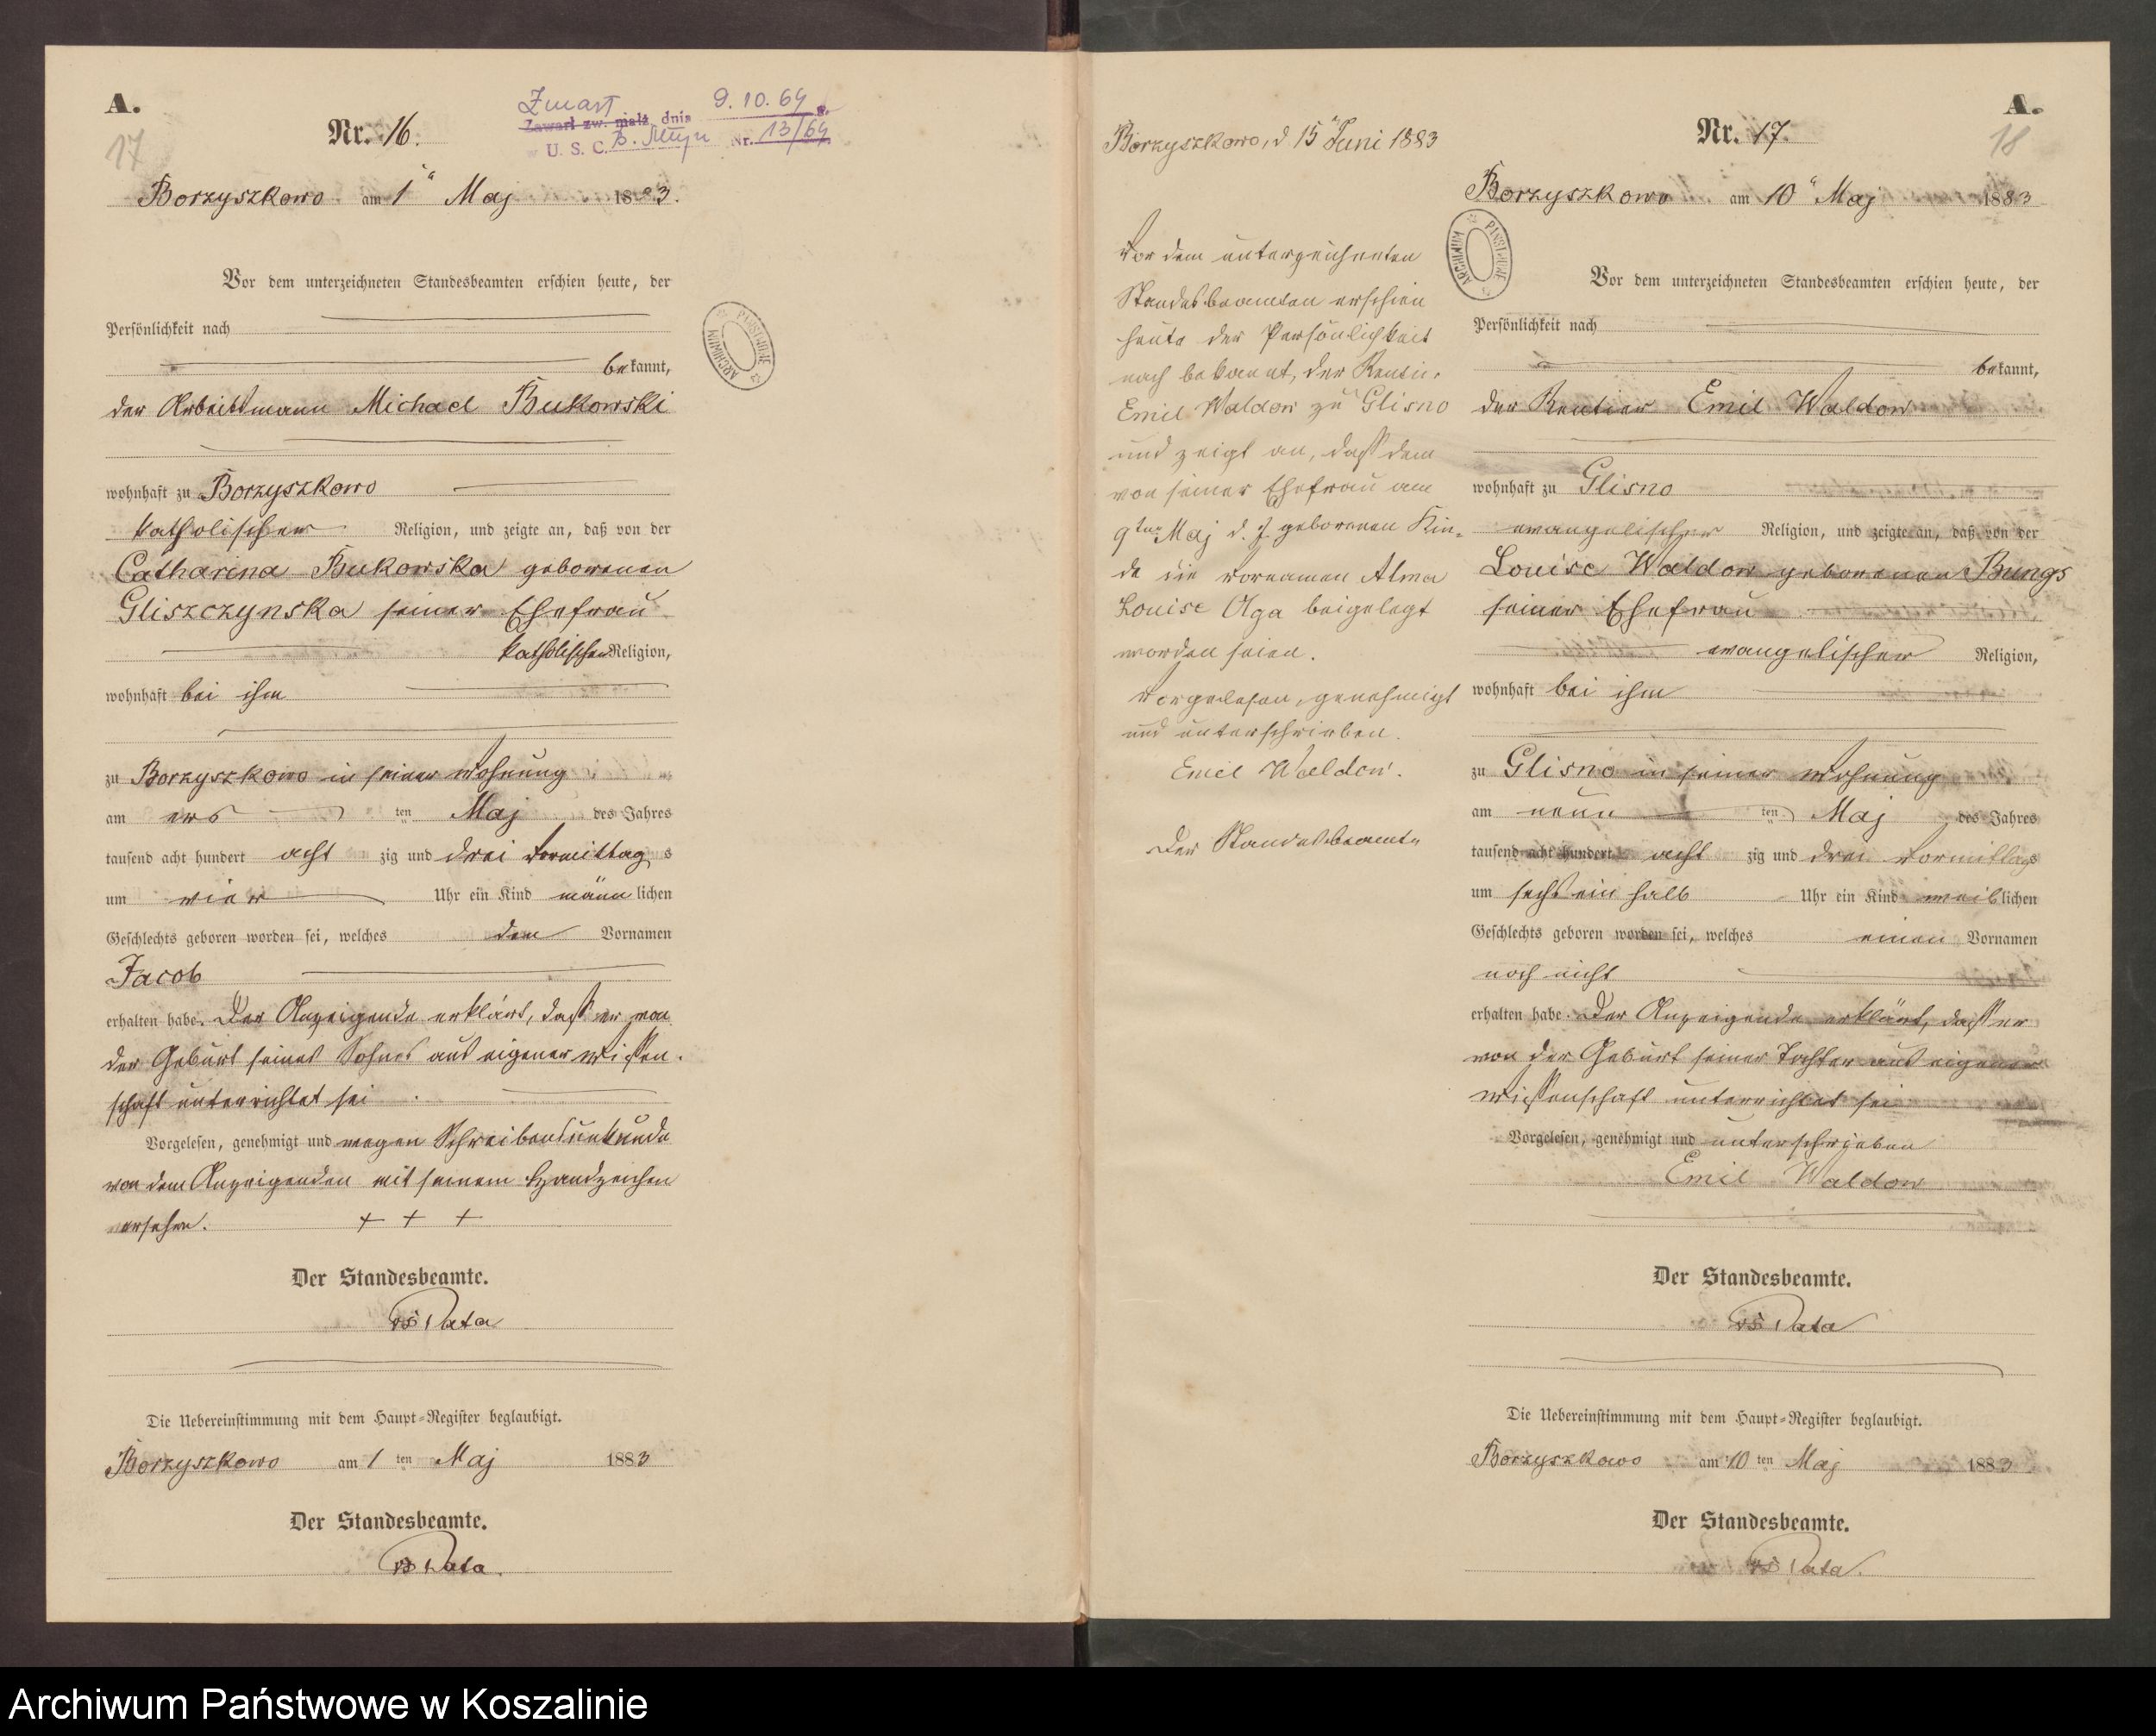 A.
17
Nr. 16.
Zmarł 9.10.64 r.
Zawarł zw. małż. dnia
U. S. C. Nr. 13/64
Borzyszkowo am 1ª Maj 1883.
Vor dem unterzeichneten Standesbeamten erschien heute, der
Persönlichkeit nach
bekannt,
der Arbeitsmann Michael Bukowski
wohnhaft zu Borzyszkowo
katholischer Religion, und zeigte an, daß von der
Catharina Bukowska geborenen
Gliszczynska seiner Ehefrau
katholischer Religion,
wohnhaft bei ihm
zu Borzyszkowo in seiner Wohnung
am ers ten Maj des Jahres
tausend acht hundert acht zig und drei Vormittags
um vier Uhr ein Kind männlichen
Geschlechts geboren worden sei, welches den Vornamen
Jacob
erhalten habe. Der Anzeigende erklärt, daß er von
der Geburt seines Sohnes aus eigener Wissen-
schaft unterrichtet sei.
Vorgelesen, genehmigt und wegen Schreibensunkunde
von dem Anzeigenden mit seinem Handzeichen
versehen. + + +
Der Standesbeamte.
Pata
Die Uebereinstimmung mit dem Haupt-Register beglaubigt.
Borzyszkowo am 1 ten Maj 1883
Der Standesbeamte.
Pata.
ARCHIWUM PAŃSTWOWE
Borzyszkowo, d 15ª Juni 1883
Vor dem unterzeichneten
Standesbeamten erschien
heute der Persönlichkeit
nach bekannt, der Rentier
Emil Waldow zu Glisno
und zeigt an, daß dem
von seiner Ehefrau am
9ten Maj d. J. geborenen Kin-
de die Vornamen Alma
Louise Olga beigelegt
worden seien.
Vorgelesen, genehmigt
und unterschrieben.
Emil Waldow.
Der Standesbeamte
A.
18
Nr. 17.
Borzyszkowo am 10ª Maj 1883
ARCHIWUM PAŃSTWOWE
Vor dem unterzeichneten Standesbeamten erschien heute, der
Persönlichkeit nach
bekannt,
der Rentier Emil Waldow
wohnhaft zu Glisno
evangelischer Religion, und zeigte an, daß von der
Louise Waldow geborenen Bungs
seiner Ehefrau
evangelischer Religion,
wohnhaft bei ihm
zu Glisno in seiner Wohnung
am neun ten Maj des Jahres
tausend acht hundert acht zig und drei Vormittags
um sechs ein halb Uhr ein Kind weiblichen
Geschlechts geboren worden sei, welches einen Vornamen
noch nicht
erhalten habe. Der Anzeigende erklärt, daß er
von der Geburt seiner Tochter aus eigener
Wissenschaft unterrichtet sei
Vorgelesen, genehmigt und unterschrieben
Emil Waldow
Der Standesbeamte.
Pata
Die Uebereinstimmung mit dem Haupt-Register beglaubigt.
Borzyszkowo am 10 ten Maj 1883
Der Standesbeamte.
Pata.
Archiwum Państwowe w Koszalinie